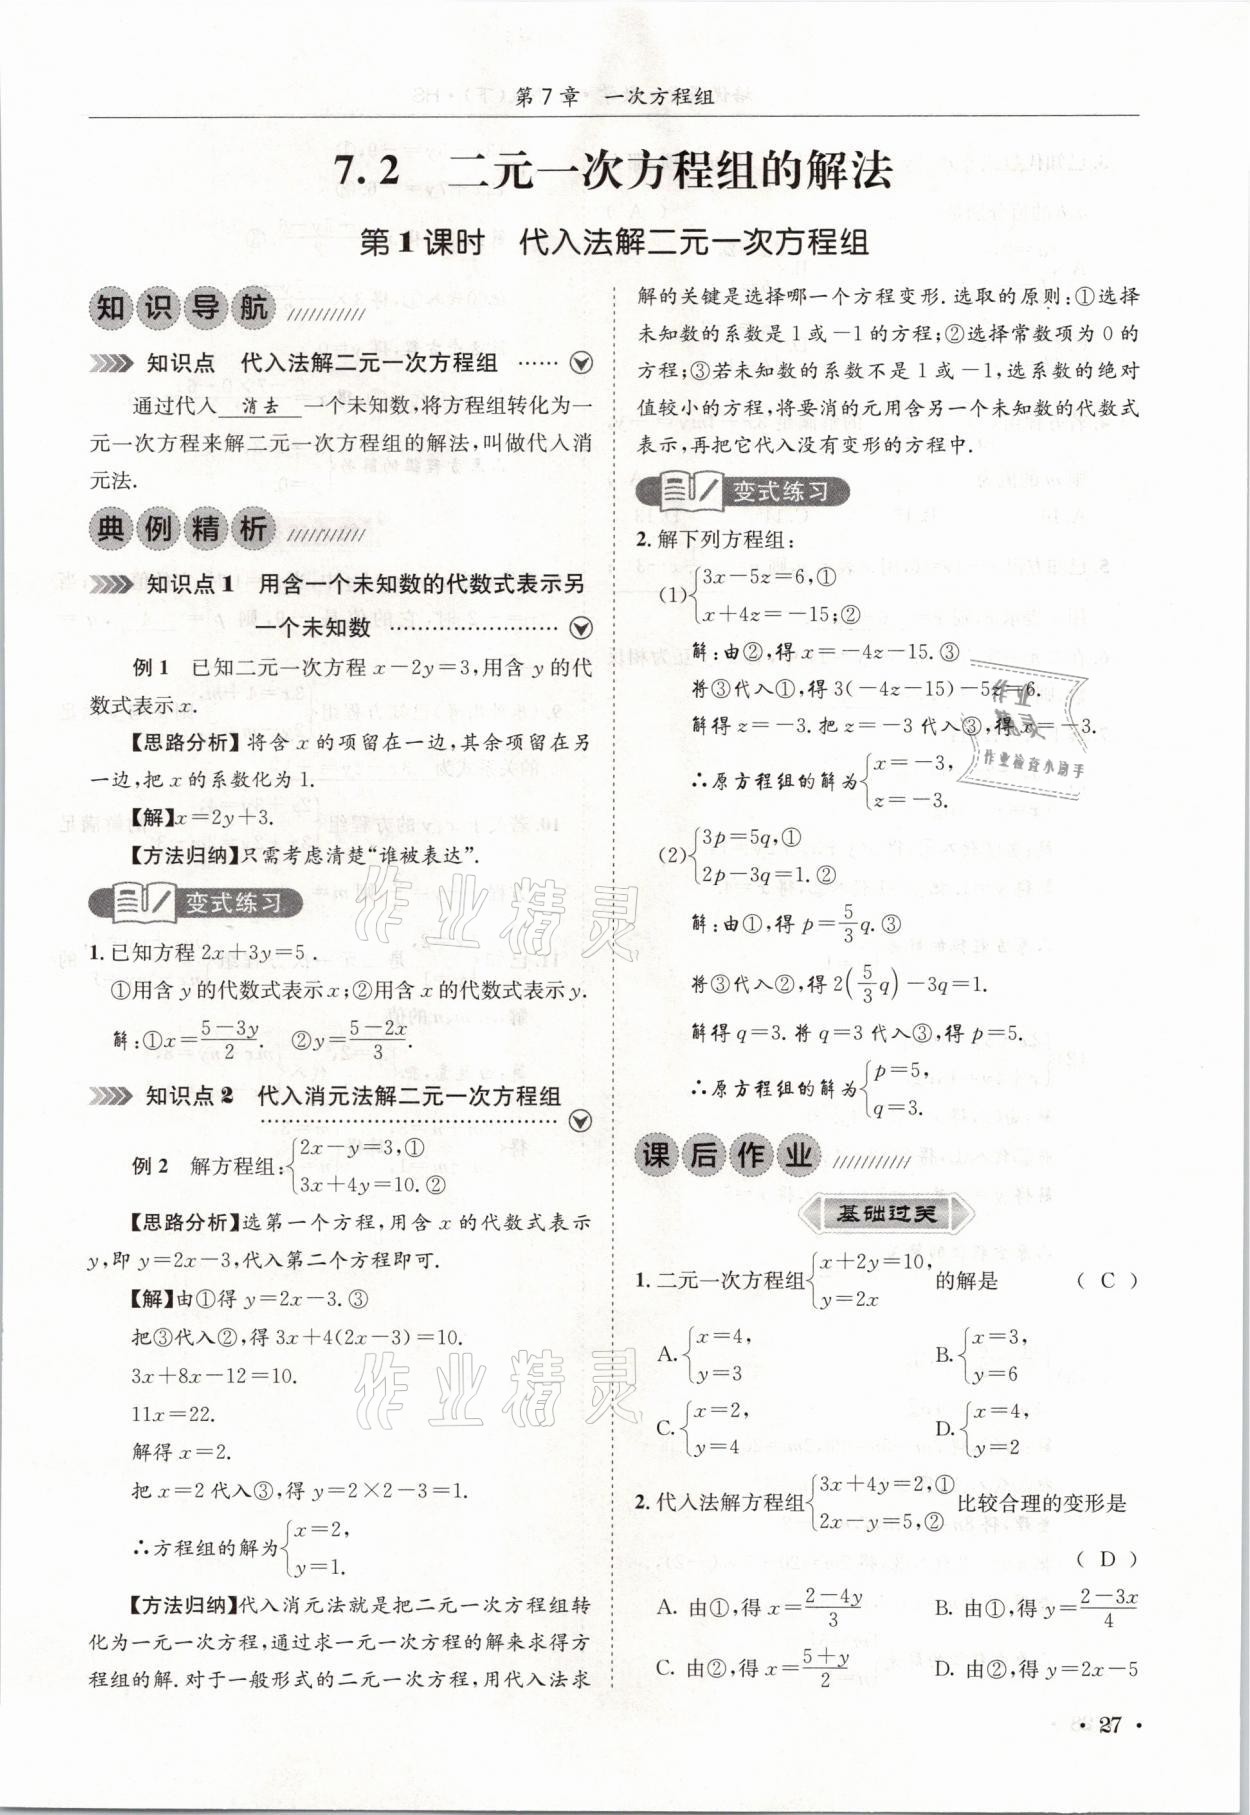 第7章 一次方程组
7.2 二元一次方程组的解法
第1课时 代入法解二元一次方程组
知识导航
知识点 代入法解二元一次方程组 ……
通过代入 消去 一个未知数,将方程组转化为一
元一次方程来解二元一次方程组的解法,叫做代入消
元法.
典例精析
知识点1 用含一个未知数的代数式表示另
一个未知数 ……………………
例1 已知二元一次方程x-2y=3,用含y的代
数式表示x.
【思路分析】将含x的项留在一边,其余项留在另
一边,把x的系数化为1.
【解】x=2y+3.
【方法归纳】只需考虑清楚“谁被表达”.
变式练习
1.已知方程2x+3y=5.
①用含y的代数式表示x;②用含x的代数式表示y.
解:①x=(5-3y)/2. ②y=(5-2x)/3.
知识点2 代入消元法解二元一次方程组
……………………………………
例2 解方程组:{2x-y=3,①
3x+4y=10.②
【思路分析】选第一个方程,用含x的代数式表示
y,即y=2x-3,代入第二个方程即可.
【解】由①得y=2x-3.③
把③代入②,得3x+4(2x-3)=10.
3x+8x-12=10.
11x=22.
解得x=2.
把x=2代入③,得y=2×2-3=1.
∴方程组的解为{x=2,
y=1.
【方法归纳】代入消元法就是把二元一次方程组转
化为一元一次方程,通过求一元一次方程的解来求得方
程组的解.对于一般形式的二元一次方程,用代入法求
解的关键是选择哪一个方程变形.选取的原则:①选择
未知数的系数是1或-1的方程;②选择常数项为0的
方程;③若未知数的系数不是1或-1,选系数的绝对
值较小的方程,将要消的元用含另一个未知数的代数式
表示,再把它代入没有变形的方程中.
变式练习
2.解下列方程组:
(1){3x-5z=6,①
x+4z=-15;②
解:由②,得x=-4z-15.③
将③代入①,得3(-4z-15)-5z=6.
解得z=-3.把z=-3代入③,得x=-3.
∴原方程组的解为{x=-3,
z=-3.
(2){3p=5q,①
2p-3q=1.②
解:由①,得p=5/3q.③
将③代入②,得2(5/3q)-3q=1.
解得q=3.将q=3代入③,得p=5.
∴原方程组的解为{p=5,
q=3.
课后作业
基础过关
1.二元一次方程组{x+2y=10,
y=2x 的解是 ( C )
A.{x=4,
y=3
B.{x=3,
y=6
C.{x=2,
y=4
D.{x=4,
y=2
2.代入法解方程组{3x+4y=2,①
2x-y=5,② 比较合理的变形是
( D )
A. 由①,得x=(2-4y)/3
B. 由①,得y=(2-3x)/4
C. 由②,得x=(5+y)/2
D. 由②,得y=2x-5
· 27 ·
作业精灵
作业精灵
作业
精灵
作业检查小助手